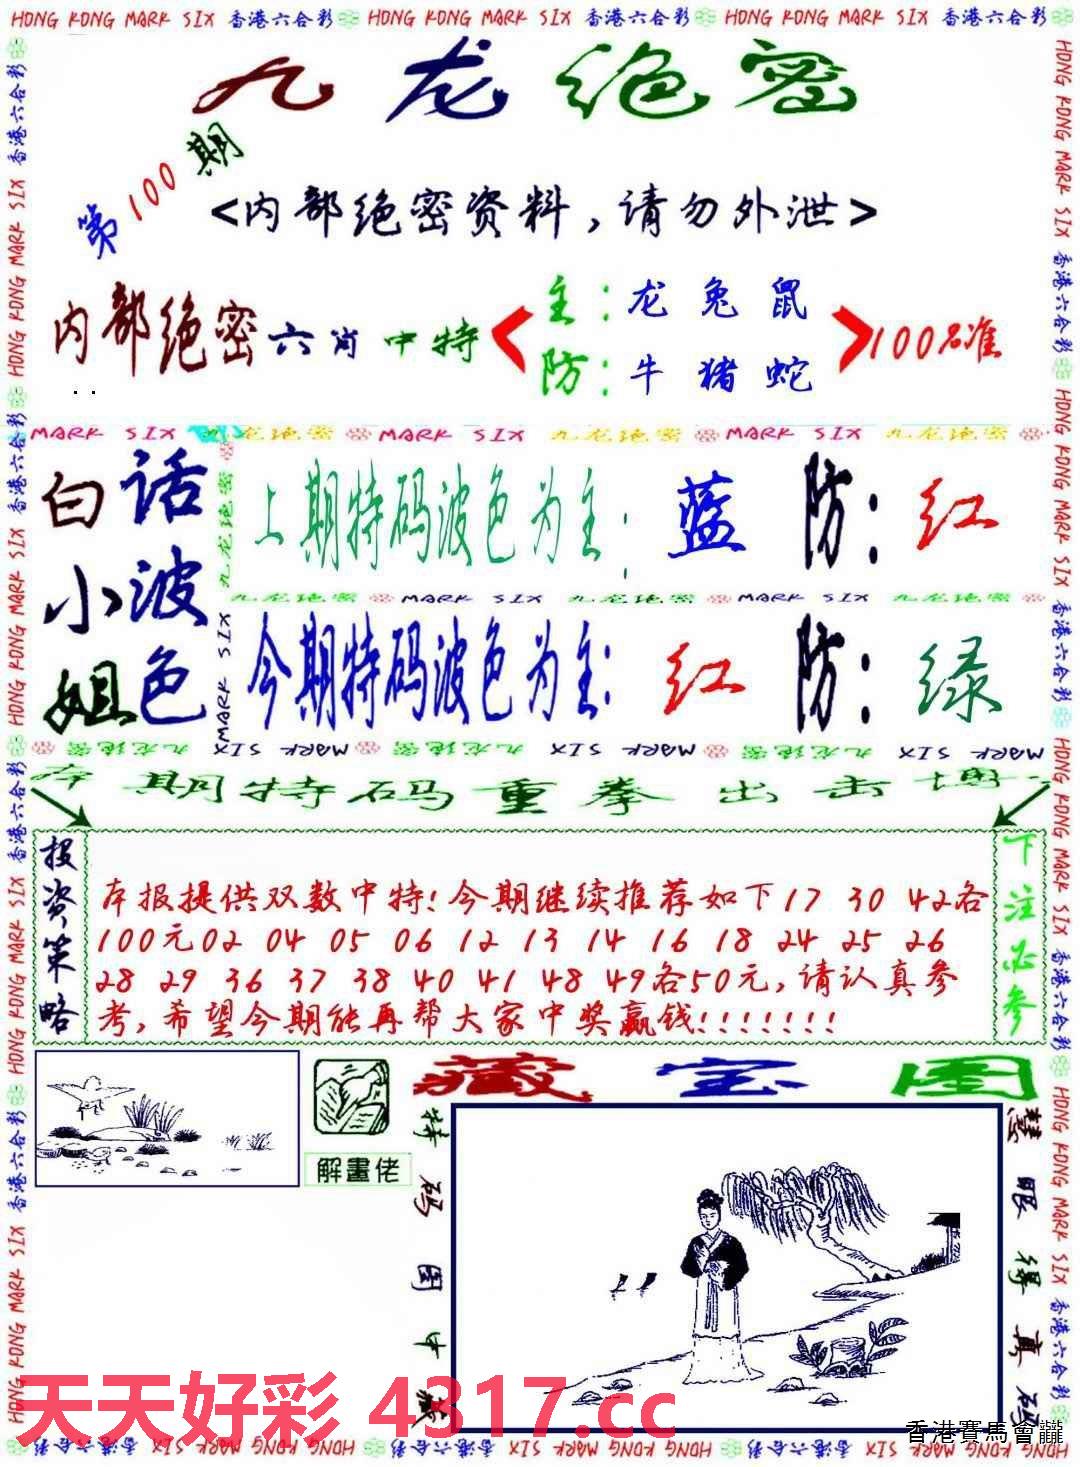 HONG KONG MARK SIX 香港六合彩 HONG KONG MARK SIX 香港六合彩 HONG KONG MARK SIX 香港六合彩
九龙绝密
第100期
<内部绝密资料,请勿外泄>
内部绝密六肖中特
主:龙兔鼠
防:牛猪蛇
100%准
MARK SIX 九龙绝密 MARK SIX 九龙绝密 MARK SIX 九龙绝密
白话小波姐色
上期特码波色为主:蓝 防:红
九龙绝密 MARK SIX 九龙绝密 MARK SIX 九龙绝密
今期特码波色为主:红 防:绿
MARK SIX 九龙绝密 MARK SIX 九龙绝密 MARK SIX 九龙绝密 MARK SIX
本期特码重拳出击博
投资策略
下注必参
本报提供双数中特!今期继续推荐如下17 30 42各
100元02 04 05 06 12 13 14 16 18 24 25 26
28 29 36 37 38 40 41 48 49各50元,请认真参
考,希望今期能再帮大家中奖赢钱!!!!!!!
解畫佬
藏宝图
特码图中藏
慧眼得真码
天天好彩 4317.cc
香港賽馬會
HONG KONG MARK SIX 香港六合彩